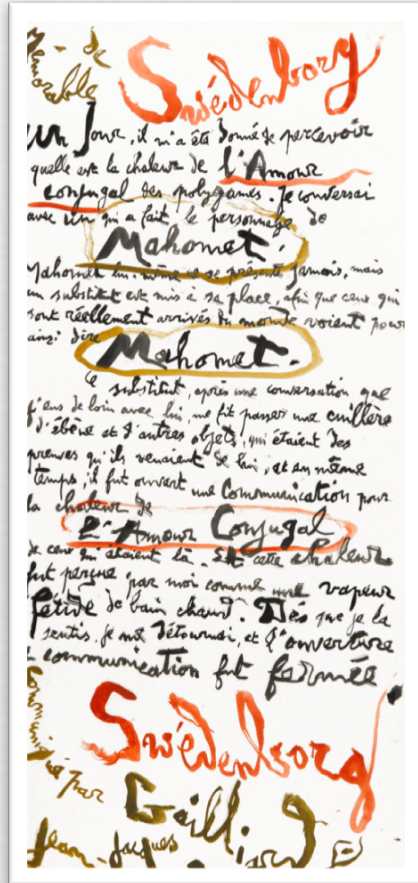 Mémorable de
Swédenborg
Un Jour, il m'a été donné de percevoir
quelle est la chaleur de l'Amour
conjugal des polygames. Je conversai
avec un qui a fait le personnage de
Mahomet.
Mahomet lui-même ne se présente jamais, mais
un substitut est mis à sa place, afin que ceux qui
sont réellement arrivés du monde voient pour
ainsi dire
Mahomet.
Ce substitut, après une conversation que
j'eus de loin avec lui, me fit passer une cuillère
d'ébène et d'autres objets, qui étaient des
preuves qu'ils venaient de lui, et en même
temps, il fut ouvert une Communication pour
la chaleur de
l'Amour Conjugal
de ceux qui étaient là. Et cette chaleur
fut perçue par moi comme une vapeur
fétide de bain chaud. Dès que je la
sentis, je me détournai, et l'ouverture
communication fut fermée
Swédenborg
Communiqué par
Gailliard
Jean-Jacques